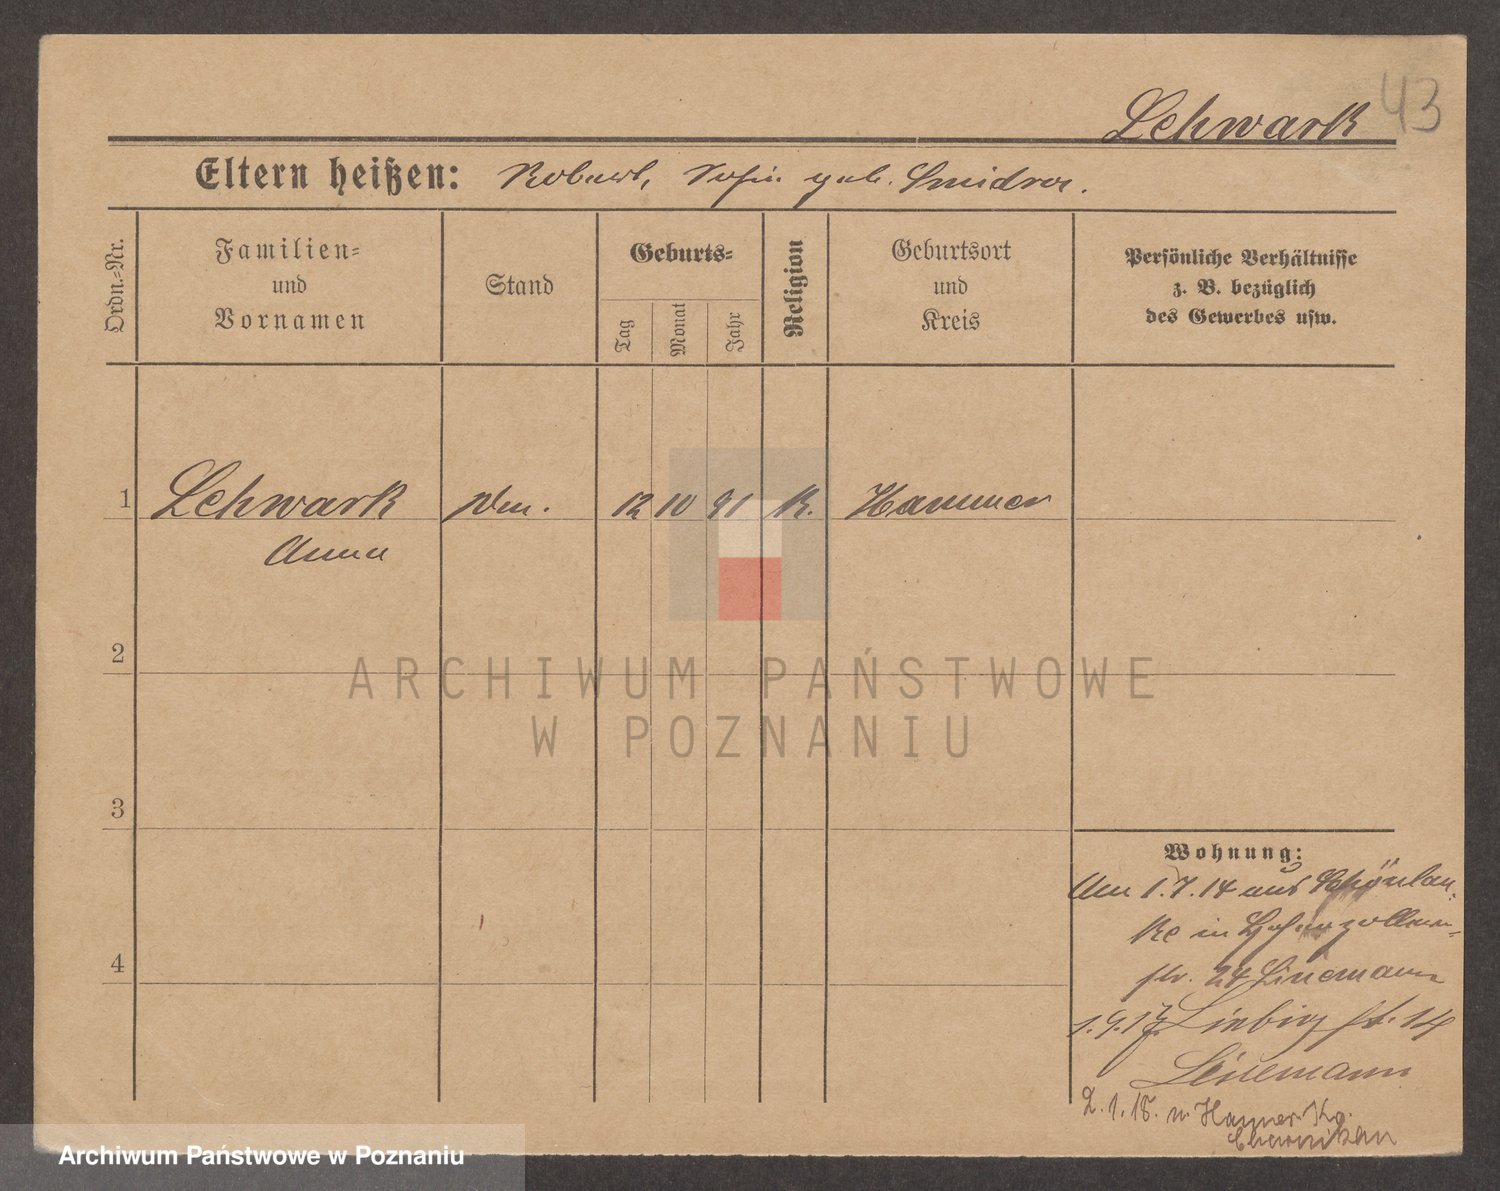 43
Lehwark
Eltern heißen: Robert, Sofie geb. Smidroa.
Ordn.-Nr.
Familien-
und
Vornamen
Stand
Geburts-
Tag
Monat
Jahr
Religion
Geburtsort
und
Kreis
Persönliche Verhältnisse
z. B. bezüglich
des Gewerbes usw.
1 Lehwark 12 10 91 K. Hammer
Anna
2
3
4
Wohnung:
Am 1.7.14 aus Schönlan-
ke in Hohenzollern-
str. 24 Linemann
1.9.17 Liebig st. 14
Linemann
2.1.18. n. Hammer Kr.
Czarnikau
ARCHIWUM PAŃSTWOWE
W POZNANIU
Archiwum Państwowe w Poznaniu